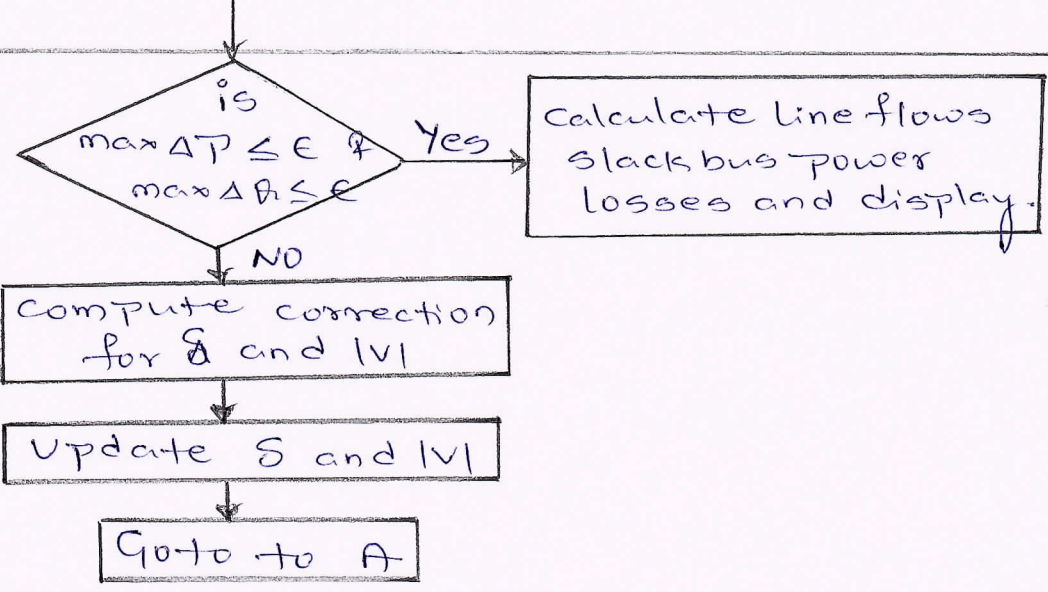 is
max ΔP ≤ ϵ &
max Δ Q ≤ ϵ
Yes
Calculate line flows
slack bus power
losses and display.
NO
Compute correction
for δ and |V|
Update δ and |V|
Goto to A